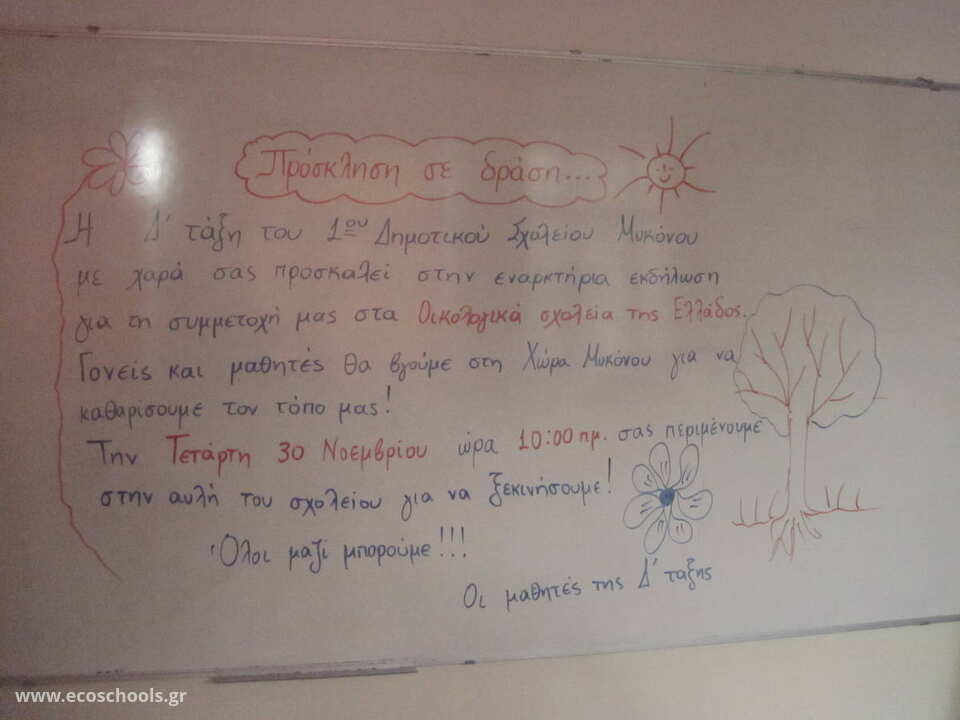 Πρόσκληση σε δράση...
Η Δ' τάξη του 1ου Δημοτικού Σχολείου Μυκόνου
με χαρά σας προσκαλεί στην εναρκτήρια εκδήλωση
για τη συμμετοχή μας στα Οικολογικά σχολεία της Ελλάδος.
Γονείς και μαθητές θα βγούμε στη Χώρα Μυκόνου για να
καθαρίσουμε τον τόπο μας!
Την Τετάρτη 30 Νοεμβρίου ώρα 10:00 πμ. σας περιμένουμε
στην αυλή του σχολείου για να ξεκινήσουμε!
Όλοι μαζί μπορούμε!!!
Οι μαθητές της Δ' τάξης
www.ecoschools.gr